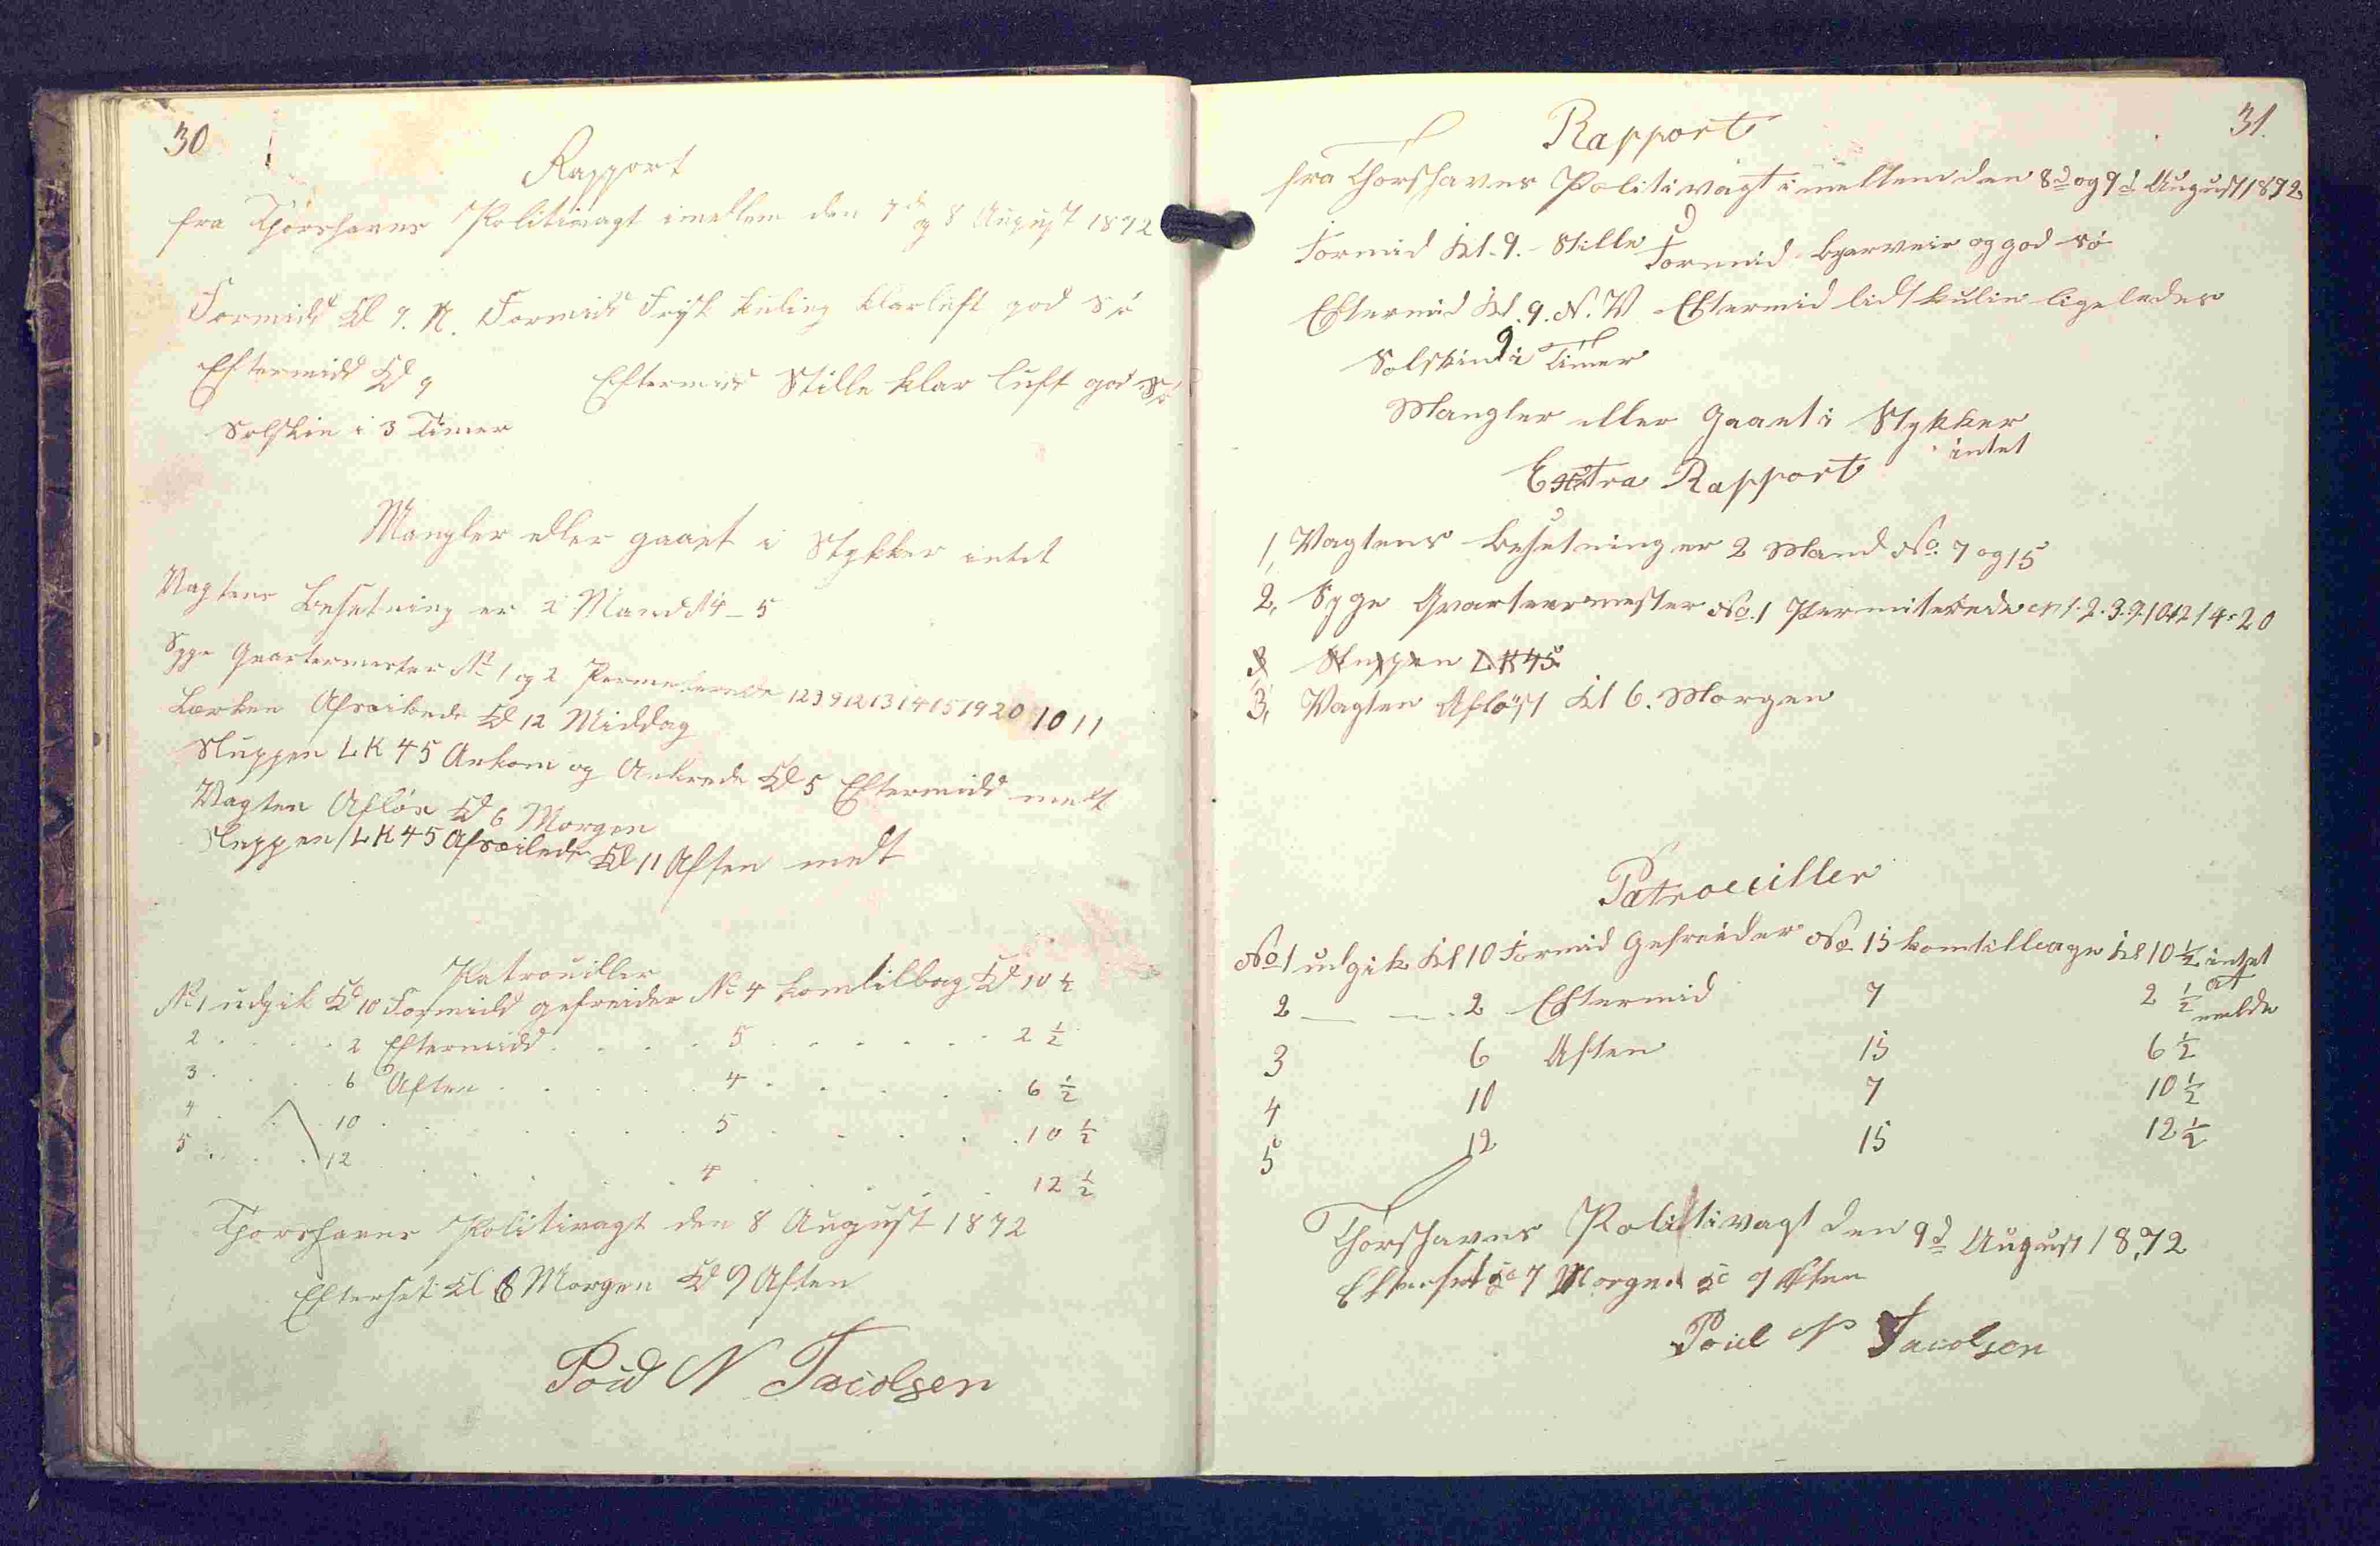 30
Rapport
fra Thorshavns Politivagt imellem den 7d og 8 August 1872
Formidd Kl 9. N. Formidd Frisk kuling klarluft god Sö
Eftermidd Kl 9 Eftermidd Stille klar luft god Sö
Solskin i 3 Timer
Mangler eller gaaet i Stykker intet
Vagtens Besetning er 2 Mand N 4 - 5
Syge Qvartermester No 1 og 2 Permeterede 1 2 3 9 12 13 14 15 19 20 10 11
Lærken Afseilede Kl 12 Middag
Sluppen LK 45 Ankom og Ankrede Kl 5 Eftermidd meldt
Vagten Aflös Kl 6 Morgen
Sluppen LK 45 Afseilede Kl 11 Aften meldt
Patrouiller
No 1 udgik Kl 10 Formidd gefreider No 4 komtilbag Kl 10 ½
2 . . . . 2 Eftermidd . . . . 5 . . . . . . 2 ½
3 . . . . 6 Aften . . . . 4 . . . . . 6 ½
4 . . . 10 . . . . . . 5 . . . . . 10 ½
5 . . . . 12 . . . . . 4 . . . . . 12 ½
Thorshavns Politivagt den 8 August 1872
Efterset Kl 8 Morgen Kl 9 Aften
Poul N Jacobsen
31.
Rapport
fra Thorshavns Politivagt imellem den 8d og 9d August 1872
Formid Kl. 9. Stille Formid og god sö
Eftermid Kl. 9. N. W Eftermid lidt kulin ligeledes
Solskind i 9 Timer
Mangler eller Gaaet i Stykker
intet
Extra Rapport
1, Vagtens Besetning er 2 Mand No. 7 og 15
2, Syge Qvarteermester No. 1 Permiterede er 1. 2. 3. 9. 10 12 14 20
3 Sluppen LK 45
3, Vagten Aflöst Kl 6. Morgen
Patroeuiller
No 1 udgik Kl 10 Formid Gefreider No. 15 kom tilbage Kl 10 ½ intet
2 — — 2 Eftermid 7 2 ½ at melde
3 6 Aften 15 6 ½
4 10 7 10 ½
5 12 15 12 ½
Thorshavns Politivagt den 9d August 1872
Efterset Kl 7 Morgen Kl 9 Aften
Poul N Jacobsen